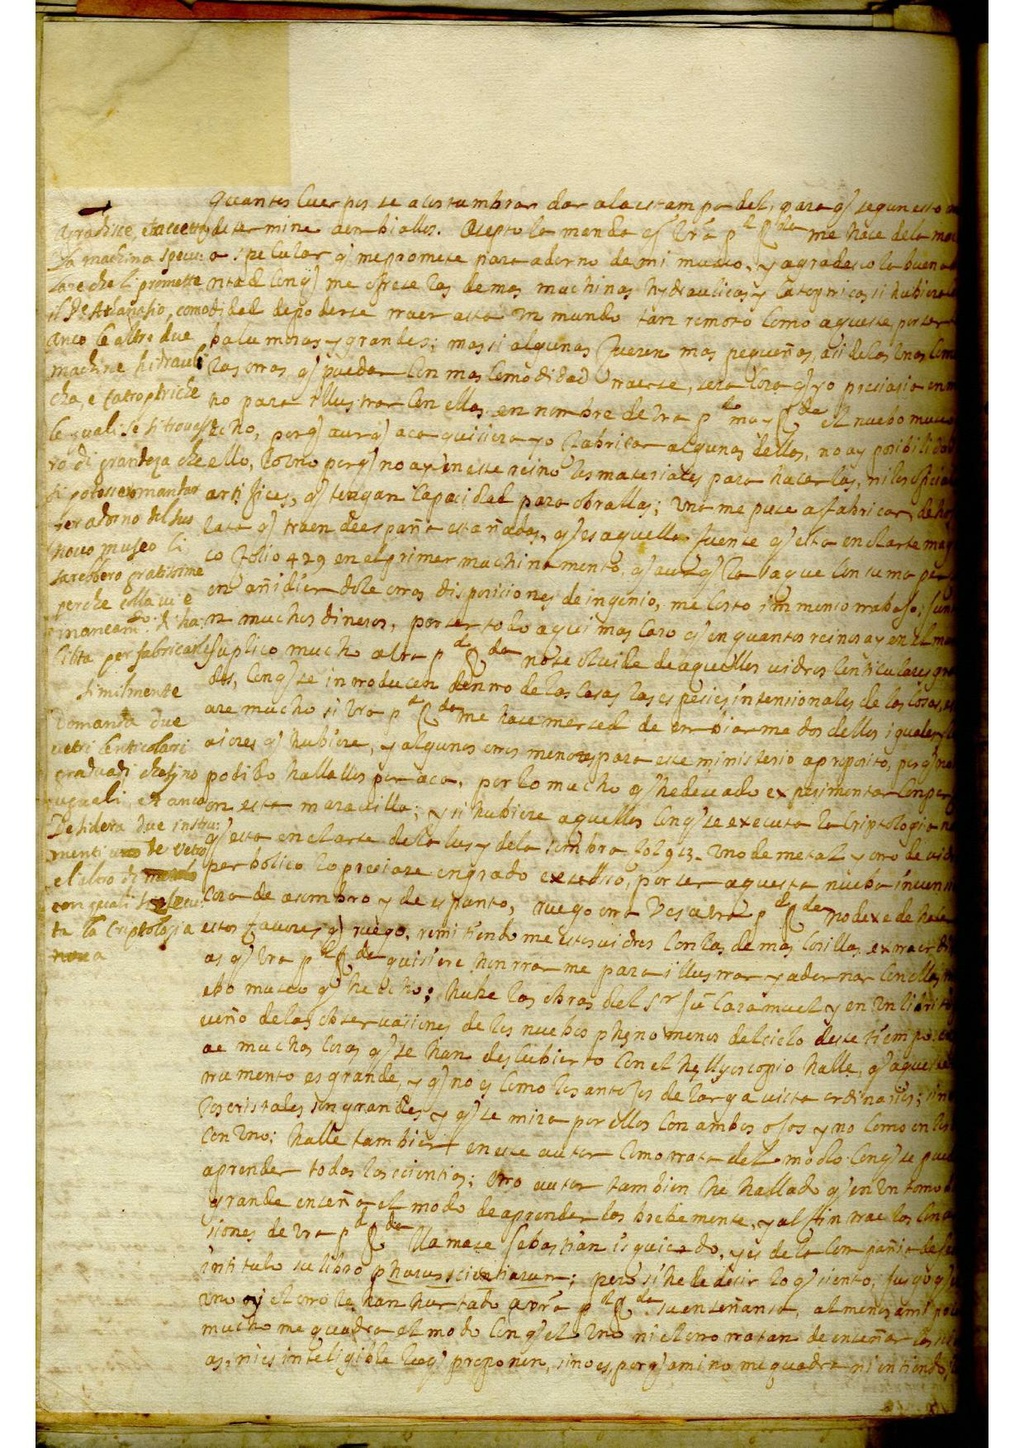 quantos cuerpos se acostumbran dar a la estampa del, para q segun esto
determine aenbiallos. Acepto la merced q Vra pd Rda me hace de la
a specular q me promete para adorno de mi museo, y agradesco la buena
ntad conq me ofrece las demas machinas hydraulicas y catoptricas si hubiera
modidad de poderse traer a este un mundo tan remoto como aqueste, por ser
balumosas y grandes; mas si algunas fueren mas pequeñas, asi de las unas como
las otras q puedan con mas comodidad traerse, sera cosa q yo preciaria en
ho para illustrar con ellas en nombre de Vra pd my Rda el nuebo museo
hecho, porq aunq aca quisiera yo fabricar algunas dellas, no ay posibilidad
ello, lo uno porq no ay en este reino los materiales para hacerlas, ni los oficiales
artifices, q tengan capacidad para obrallas; una me puse a fabricar, de hoja
lata q traen de españa estañada, q es aquella fuente q esta en el arte mag
co folio 429 en el primer machinamento, q aunq la saque con suma per
on añidiendole otras disposiciones de ingenio, me costo immenso trabajo,
n muchos dineros, por ser todo aqui mas caro q en quantos reinos ay en el mundo
suplico mucho a Vra pd Rda no se olvide de aquellos vidros lenticulares gra
dos, conq se introducen dentro de las casas las especies intensionales de las cosas,
are mucho si Vra pd Rda me hace merced de enbiarme dos dellos iguales
aiores q hubiere, y algunos otros menores para este ministerio a proposito, porq no
podido hallallos por aca, por lo mucho q he deseado experimentar con per
on esta maravilla; y si hubiere aquellos conq se executa la criptologia
q esta en el arte de la lus y de la sombra fol 913. uno de metal y otro de vidro
parbolico lo preciare en grado excessivo, por ser aquesta nueba invension
cosa de asombro y de espanto, ruego otra ves a Vra pd Rda no dexe de hacer
estos favores q ruego, remitiendome estos vidros con las demas cosillas extraordi
as q Vra pd Rda quisiere honrrarme para illustrar y adornar con ellas
ebo museo q he hecho; hube las obras del Sr Ju Caramuel y en un librito
ueño de las observasiones de los nuebos phenomenos del cielo deste tiempo
de muchas cosas q se han descubierto con el hellyoscopio halle, q aqueste
trumento es grande, y q no es como los antojos de larga vista ordinarios; sino
los cristales son grandes y q se mira por ellos con ambos ojos y no como en los
con uno; halle tambien en este autor como trata del modo conq se pued
aprender todas las ciencias; otro autor tambien he hallado q en un tomo
grande enseña el modo de aprenderlas brebemente, y al fin trae las conclu
siones de Vra pd Rda llamase Sebastian isquierdo, y es de la compañia de
intitula su libro pharus scientiarum; pero si he de decir lo q siento, jusgo q
uno y el otro le han hurtado a Vra pd Rda su enseñansa, al menos a mi
mucho me quadra el modo conq el uno ni el otro tratan de enseñar las
as, ni es inteligible loq proponen, sino es, porq a mi no me quadra ni entiendo
Agradisce, et accetta
la machina specu:
lare che li promette
il Pe Atanasio, como
anco le altre due
machine hidrauli
cha, e catoptriche
le quali se si trovas
ro di grandeza che
si potessero mandar
per adorno del suo
novo museo li
sarebbero gratissime
perche colla vi è
mancam.to d'ha
lita per fabricarle
similmente
Domanda due
vetri lenticolari
graduadi che sijno
uguali, et anco
Desidera due instru:
menti uno de vetro
e l'altro di metallo
con quali s'essecu:
ta la Criptologia
nova